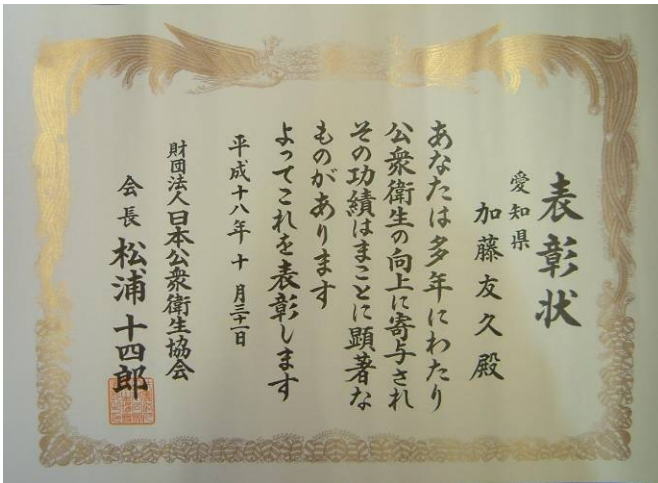 表彰状
愛知県
加藤友久殿
あなたは多年にわたり
公衆衛生の向上に寄与され
その功績はまことに顕著な
ものがあります
よってこれを表彰します
平成十八年十月三十一日
財団法人日本公衆衛生協会
会長 松浦十四郎